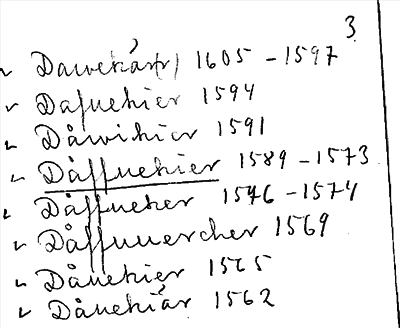 3
✓ Dawekärr) 1605 - 1597
✓ Dafuekier 1594
✓ Dåwikier 1591
✓ Dåffuekier 1589 - 1573
✓ Dåffueker 1576 - 1574
✓ Dåffuuercher 1569
✓ Dåuekier 1565
✓ Dåuekiär 1562